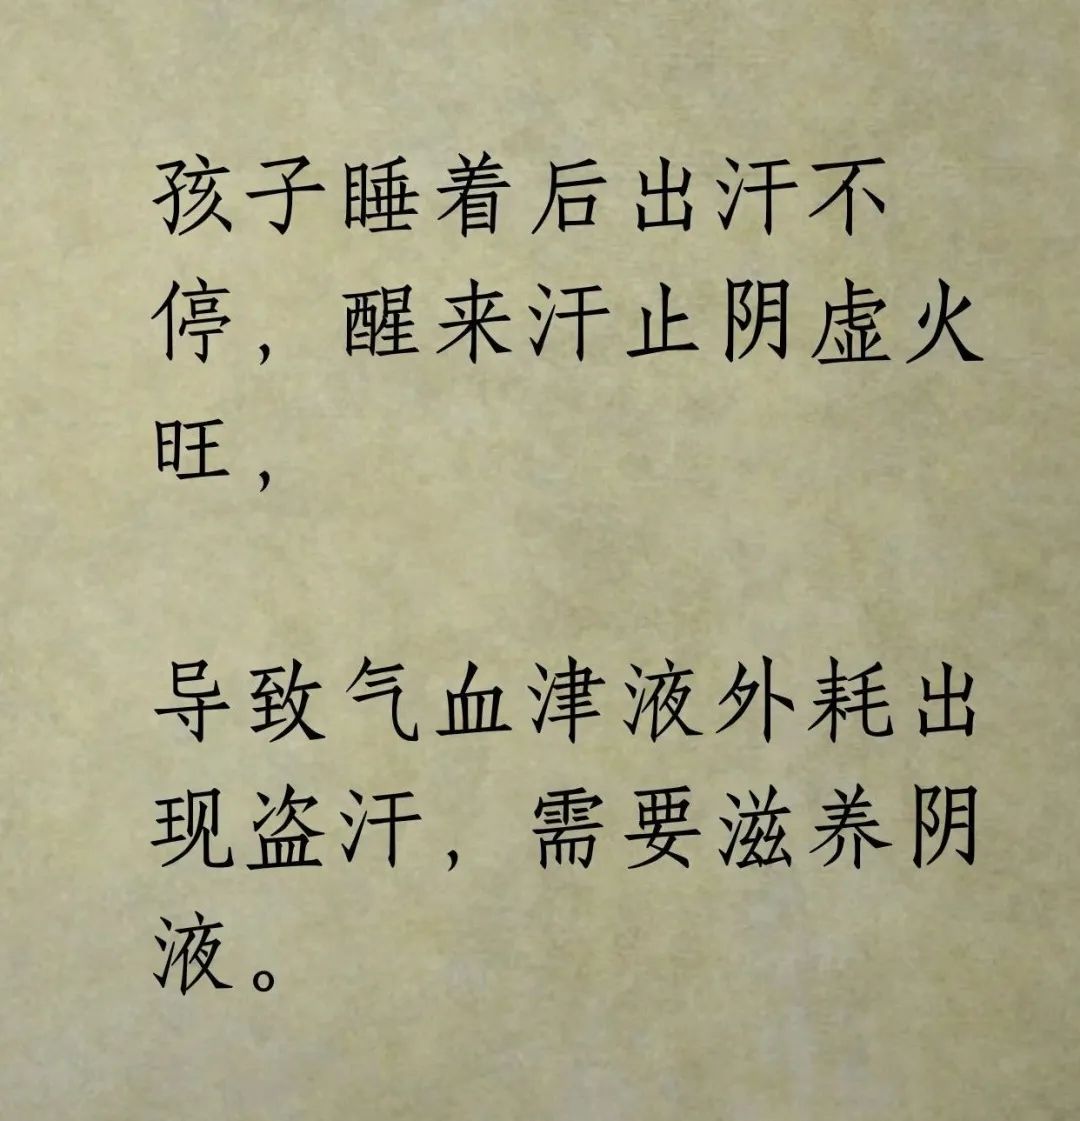 孩子睡着后出汗不
停，醒来汗止阴虚火
旺，
导致气血津液外耗出
现盗汗，需要滋养阴
液。